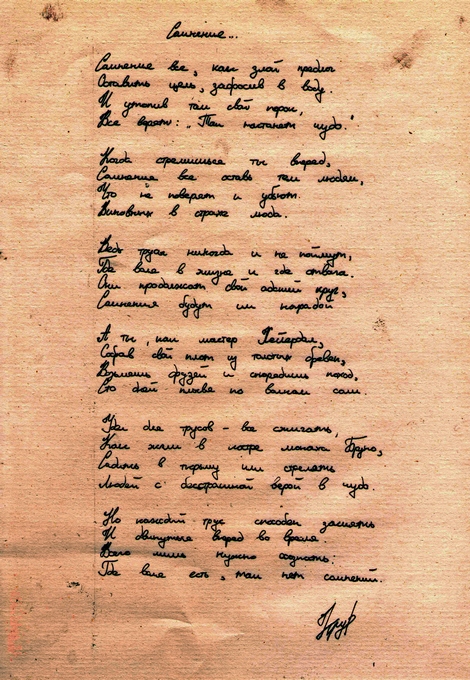 Сомнение...
Сомнение все, как злой предлог
Оставить цель, забросив в воду.
И утопив там свой порок,
Все верят: „Там настанет чудо."
Когда стремишься ты вперед,
Сомнение все оставь тем людям,
Что не поверят и убьют
Виновных в страже люда.
Ведь труса никогда и не поймут,
Где воля в жизни и где отвага.
Они продолжат свой адский круг,
Сомнения будут им наградой
А ты, как мастер Хейердал,
Собрав свой плот из толстых бревен,
Возьмешь друзей и снарядишь поход,
Сто дней плывя по волнам сам.
Удел для трусов - все сжигать,
Как жгли в костре монаха Бруно,
Садить в тюрьму или стрелять
Людей с бесстрашной верой в чудо.
Но каждый трус способен засиять
И двинуться вперед во время.
Всего лишь нужно осознать:
Где воля есть, там нет сомнений.